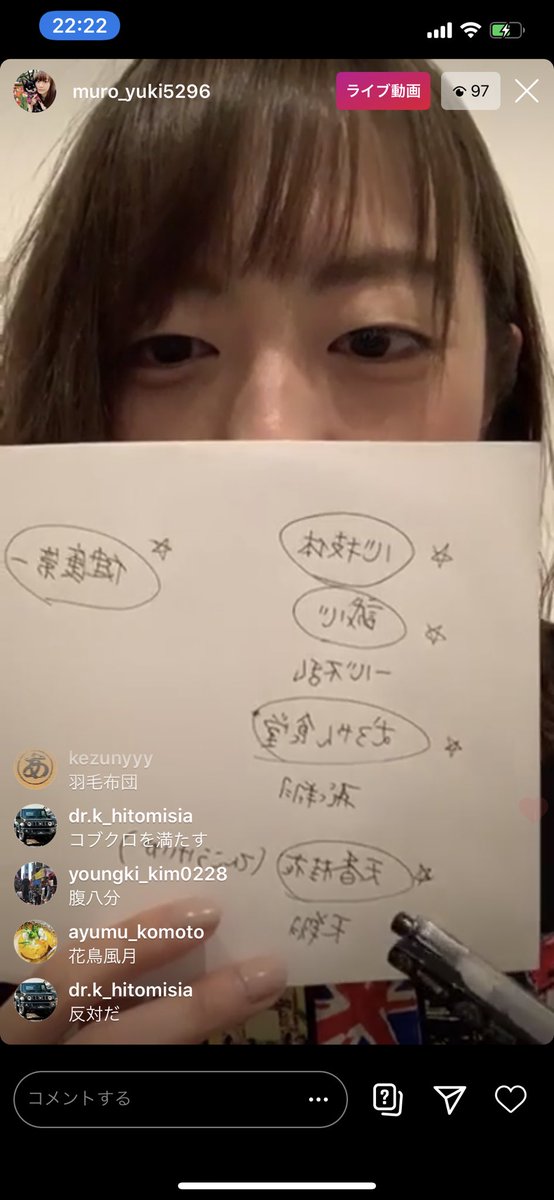 22:22
muro_yuki5296
ライブ動画
97
心技体
健康第一
一心不乱
むろやん食堂
天香桂花
kezunyyy
羽毛布団
dr.k_hitomisia
コブクロを満たす
youngki_kim0228
腹八分
ayumu_komoto
花鳥風月
dr.k_hitomisia
反対だ
コメントする